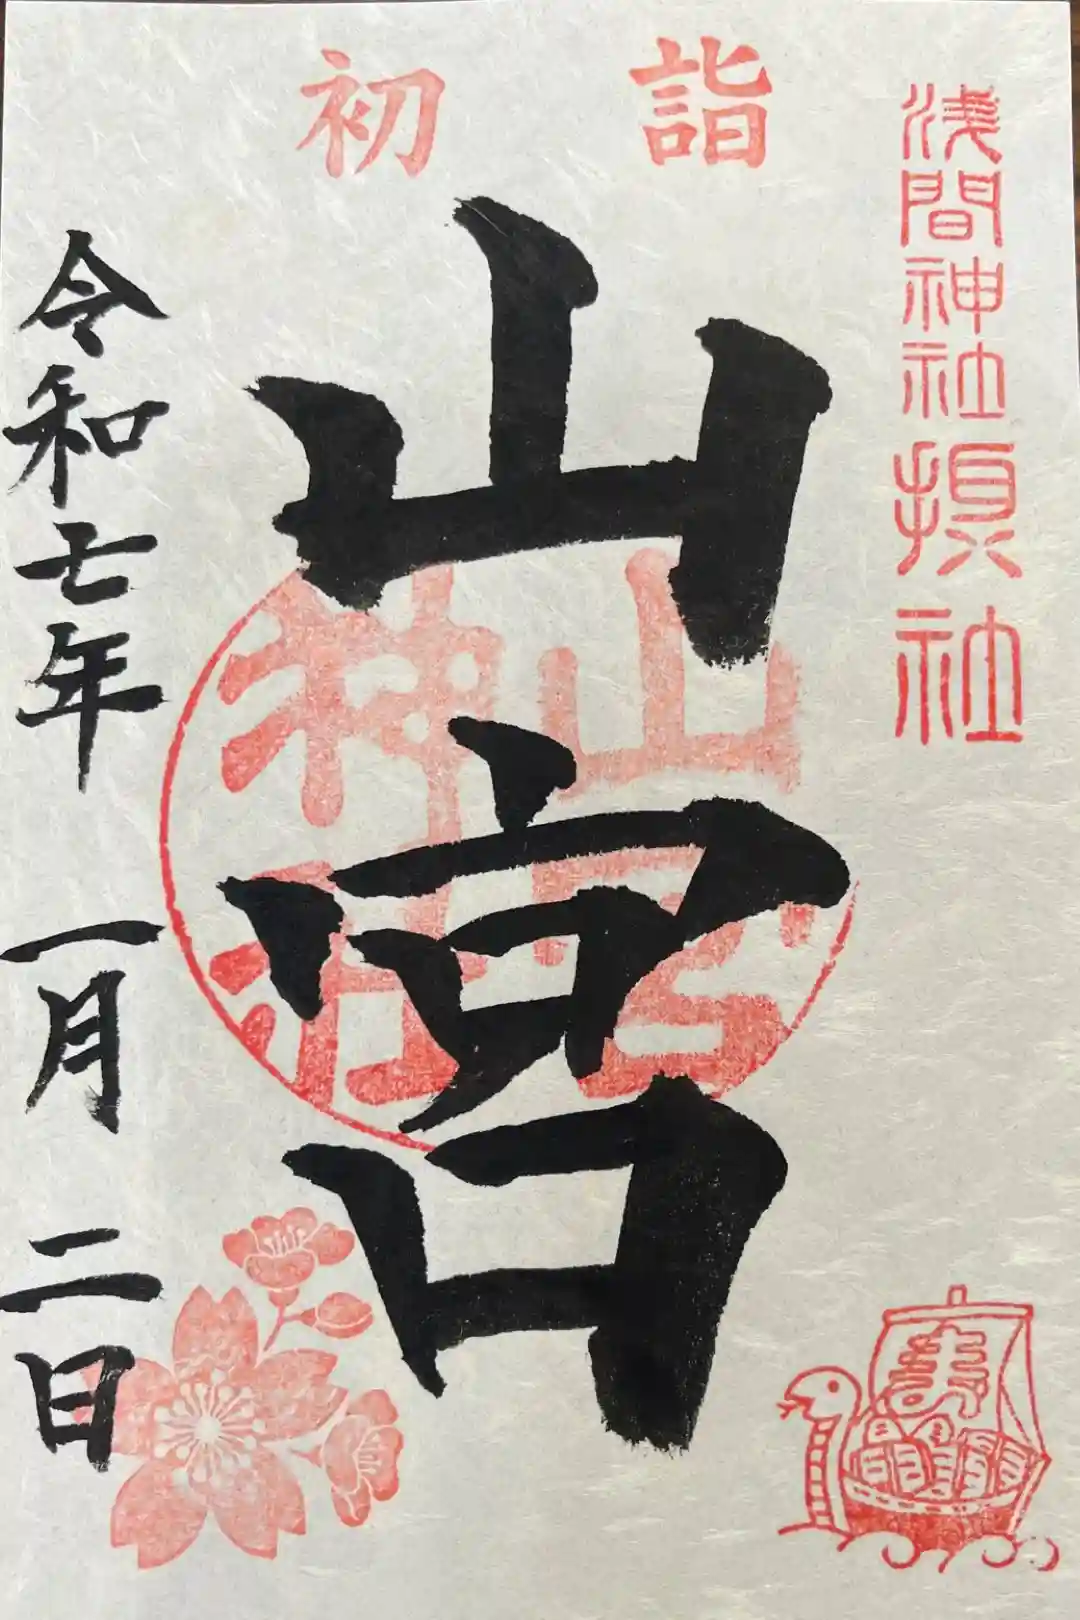 初詣
浅間神社摂社
山宮
山宮
神社
令和七年 一月 二日
寿